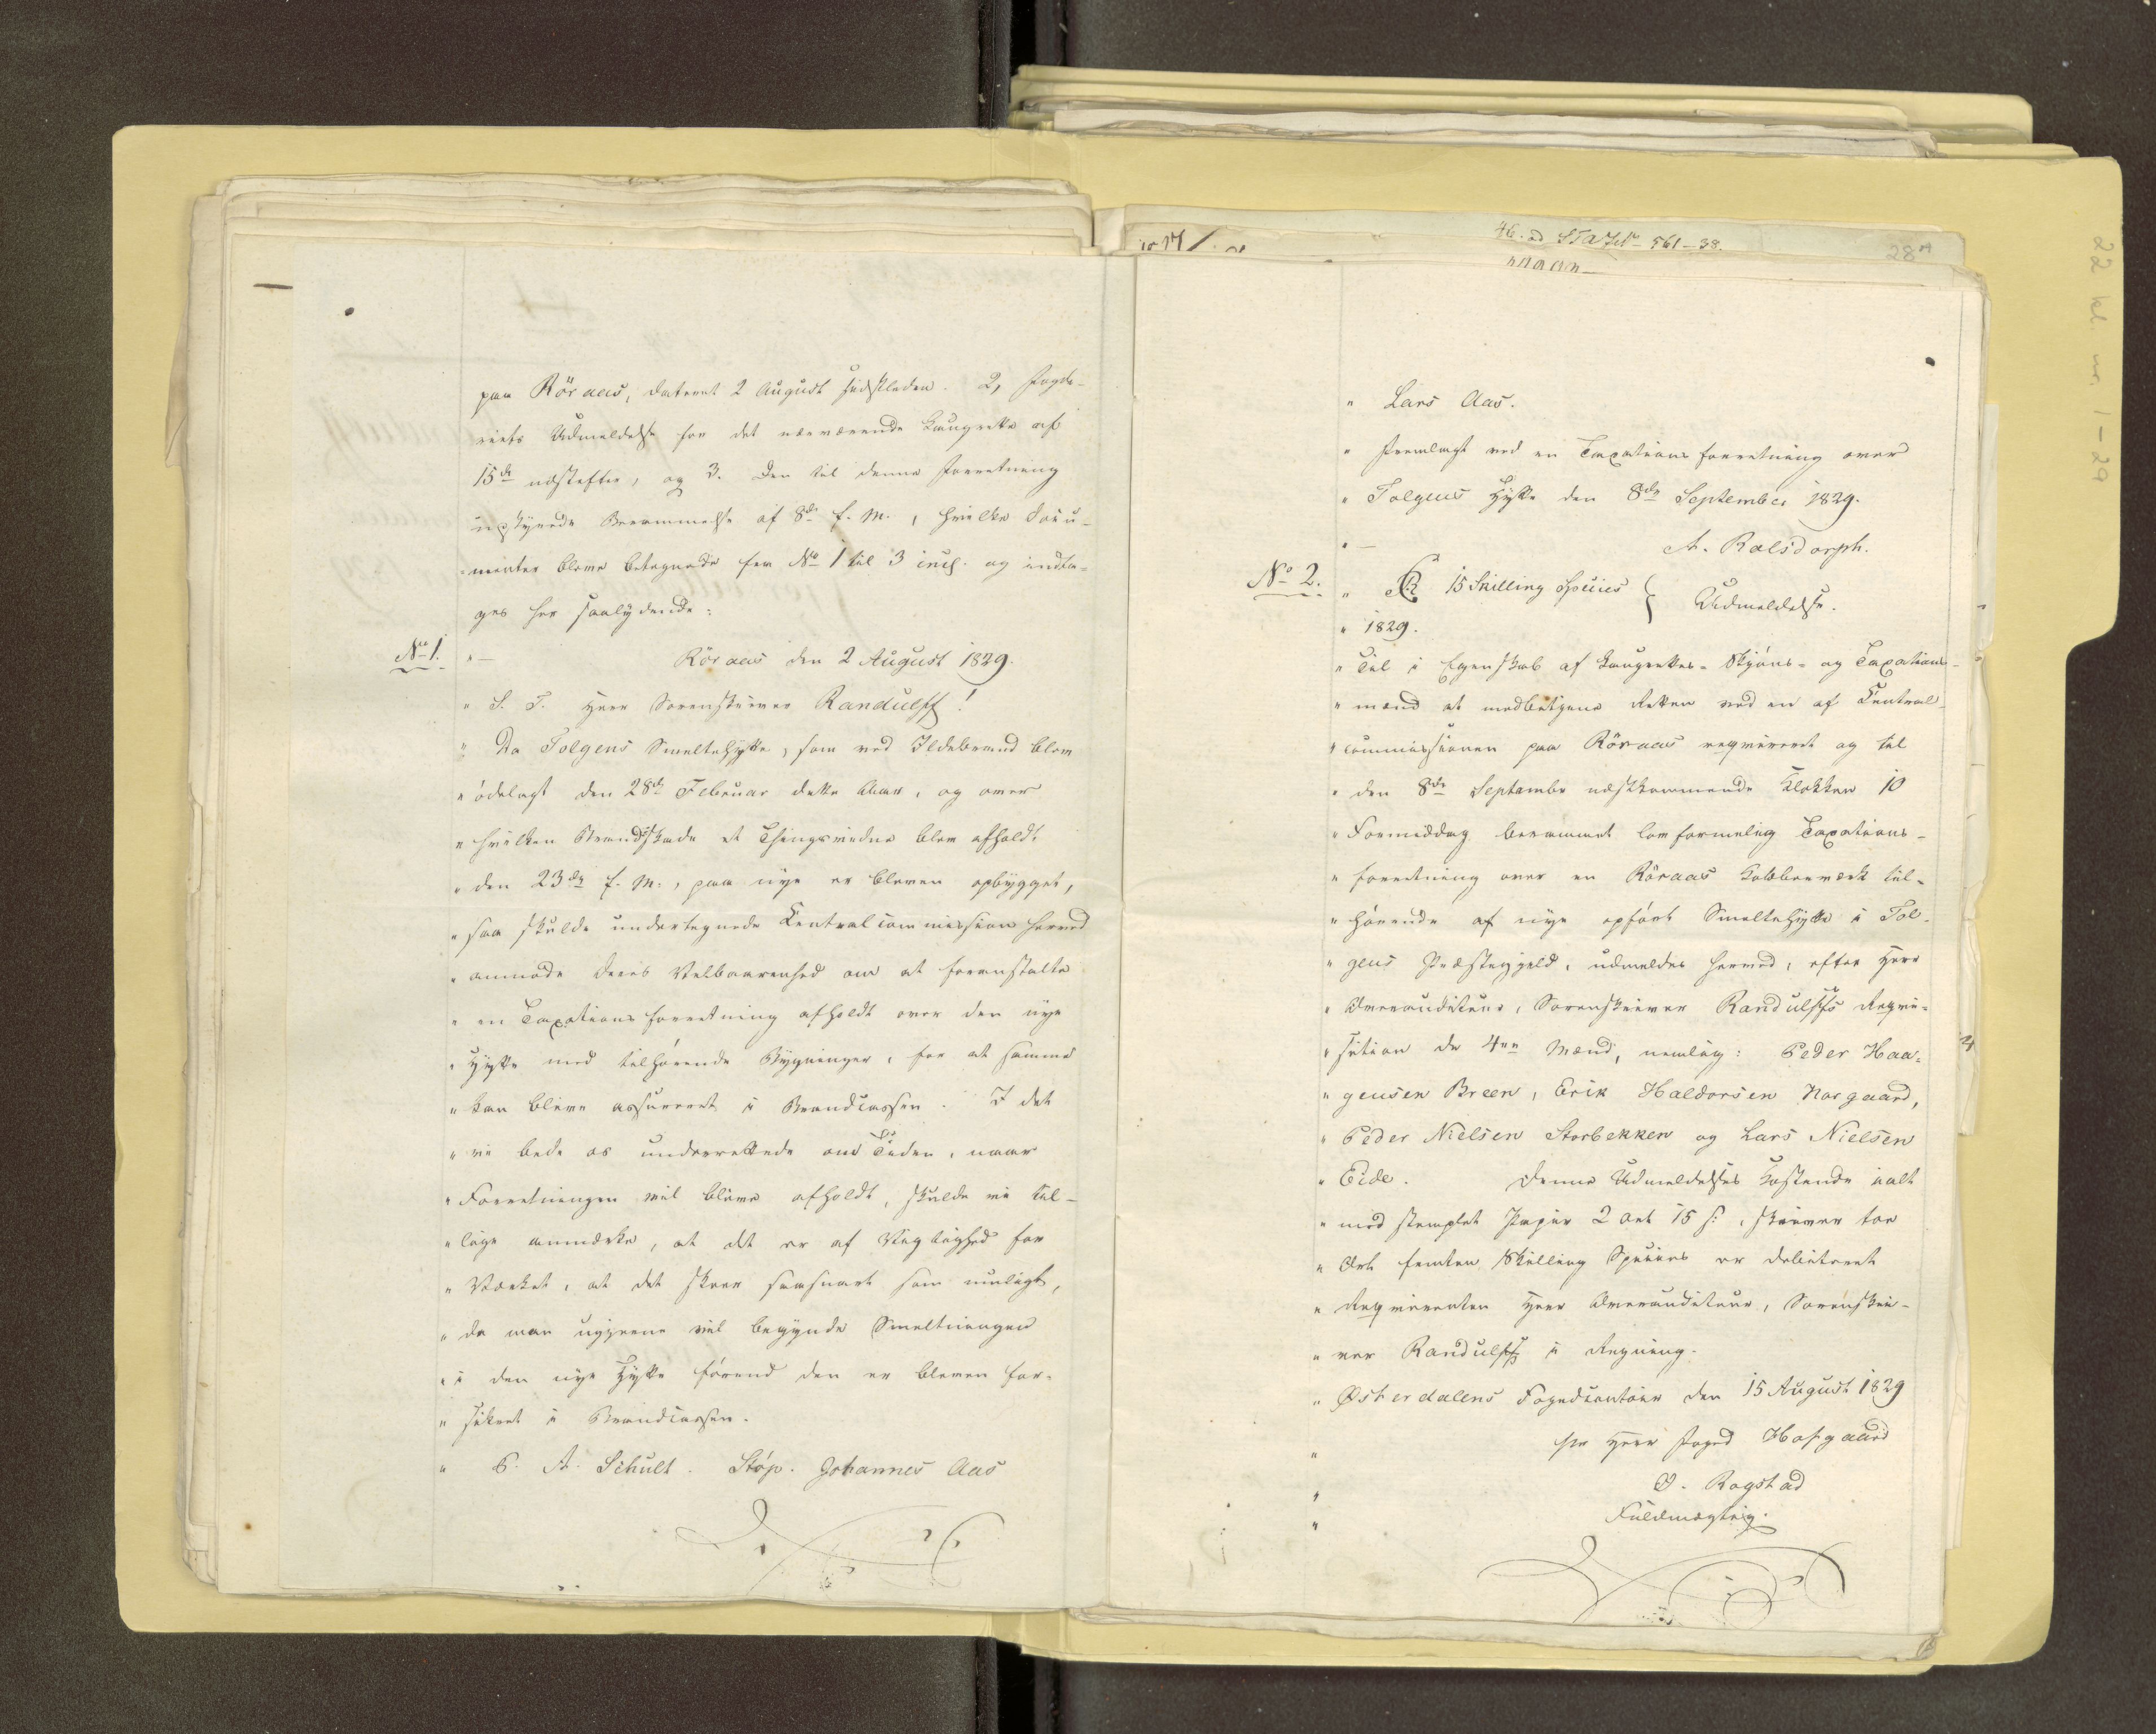 paa Röraas, dateret 2 August sidstleden. 2, Fogde-
riets Udmeldelse for det nærværende Laugrette af
15de næstefter, og 3. Den til denne Forretning
udstÿrede Berammelse af 8de f. M., hvilke Docu-
-menter bleve betegnede som No 1 til 3 incl. og indta-
ges her saalÿdende:
No 1.
" — Röraas den 2 August 1829.
" S. T. Herr Sorenskriver Randulff!
" Da Tolgens Smeltehÿtte, som ved Ildebrand blev
" ödelagt den 28de Februar dette Aar, og over
" hvilken Brandskade et Thingsvidne blev afholdt
" den 23de f. M., paa nÿe er bleven opbÿgget,
" saa skulde undertegnede Centralcommission herved
" anmode Deres Velbaarenhed om at foranstalte
" en Taxationsforretning afholdt over den nÿe
" Hÿtte med tilhörende Bÿgninger, for at samme
" kan blive assureret i Brandcassen. I det
" vi bede os underrettede om Tiden, naar
" Forretningen vil blive afholdt, skulde vi til-
" lige anmærke, at det er af Vigtighed for
" Værket, at det skeer saasnart som muligt,
" da man ugjerne vil begÿnde Smeltningen
" i den nÿe Hÿtte förend den er bleven for-
" sikret i Brandcassen.
" P. A. Schult. Stöp. Johannes Aas
46. ad STaJel 561-38.
28
" Lars Aas.
" Fremlagt ved en Taxationsforretning over
" Tolgens Hÿtte den 8de September 1829.
" — A. Rolsdorph.
No 2.
" 15 Skilling Species } Udmeldelse.
" 1829.
" Til i Egenskab af Laugrettes- Skjöns- og Taxations-
" mænd at medbetjene Retten ved en af Central-
" commissionen paa Röraas requireret og til
" den 8de September næstkommende Klokken 10
" Formiddag berammet lovformelig Taxations-
" forretning over en Röraas Kobberværk til-
" hörende af nÿe opfört Smeltehÿtte i Tol-
" gens Præstegjeld, udmeldes herved, efter Herr
" Overauditeur, Sorenskriver Randulffs Requi-
" sition de 4re Mænd, nemlig: Peder Haa-
" gensen Breen, Erik Haldorsen Norgaard,
" Peder Nielsen Storbekken og Lars Nielsen
" Eide. Denne Udmeldelses Kostende ialt
" med stemplet Papir 2 Ort 15 s:, skriver toe
" Ort femten Skilling Species er debiteret
" Requirenten Herr Overauditeur, Sorenskri-
" ver Randulff i Regning.
" Østerdalens Fogedcontoir den 15 August 1829
" for Herr Foged Hofgaard
" O. Rogstad
" Fuldmægtig.
22 kl. nr. 1-29